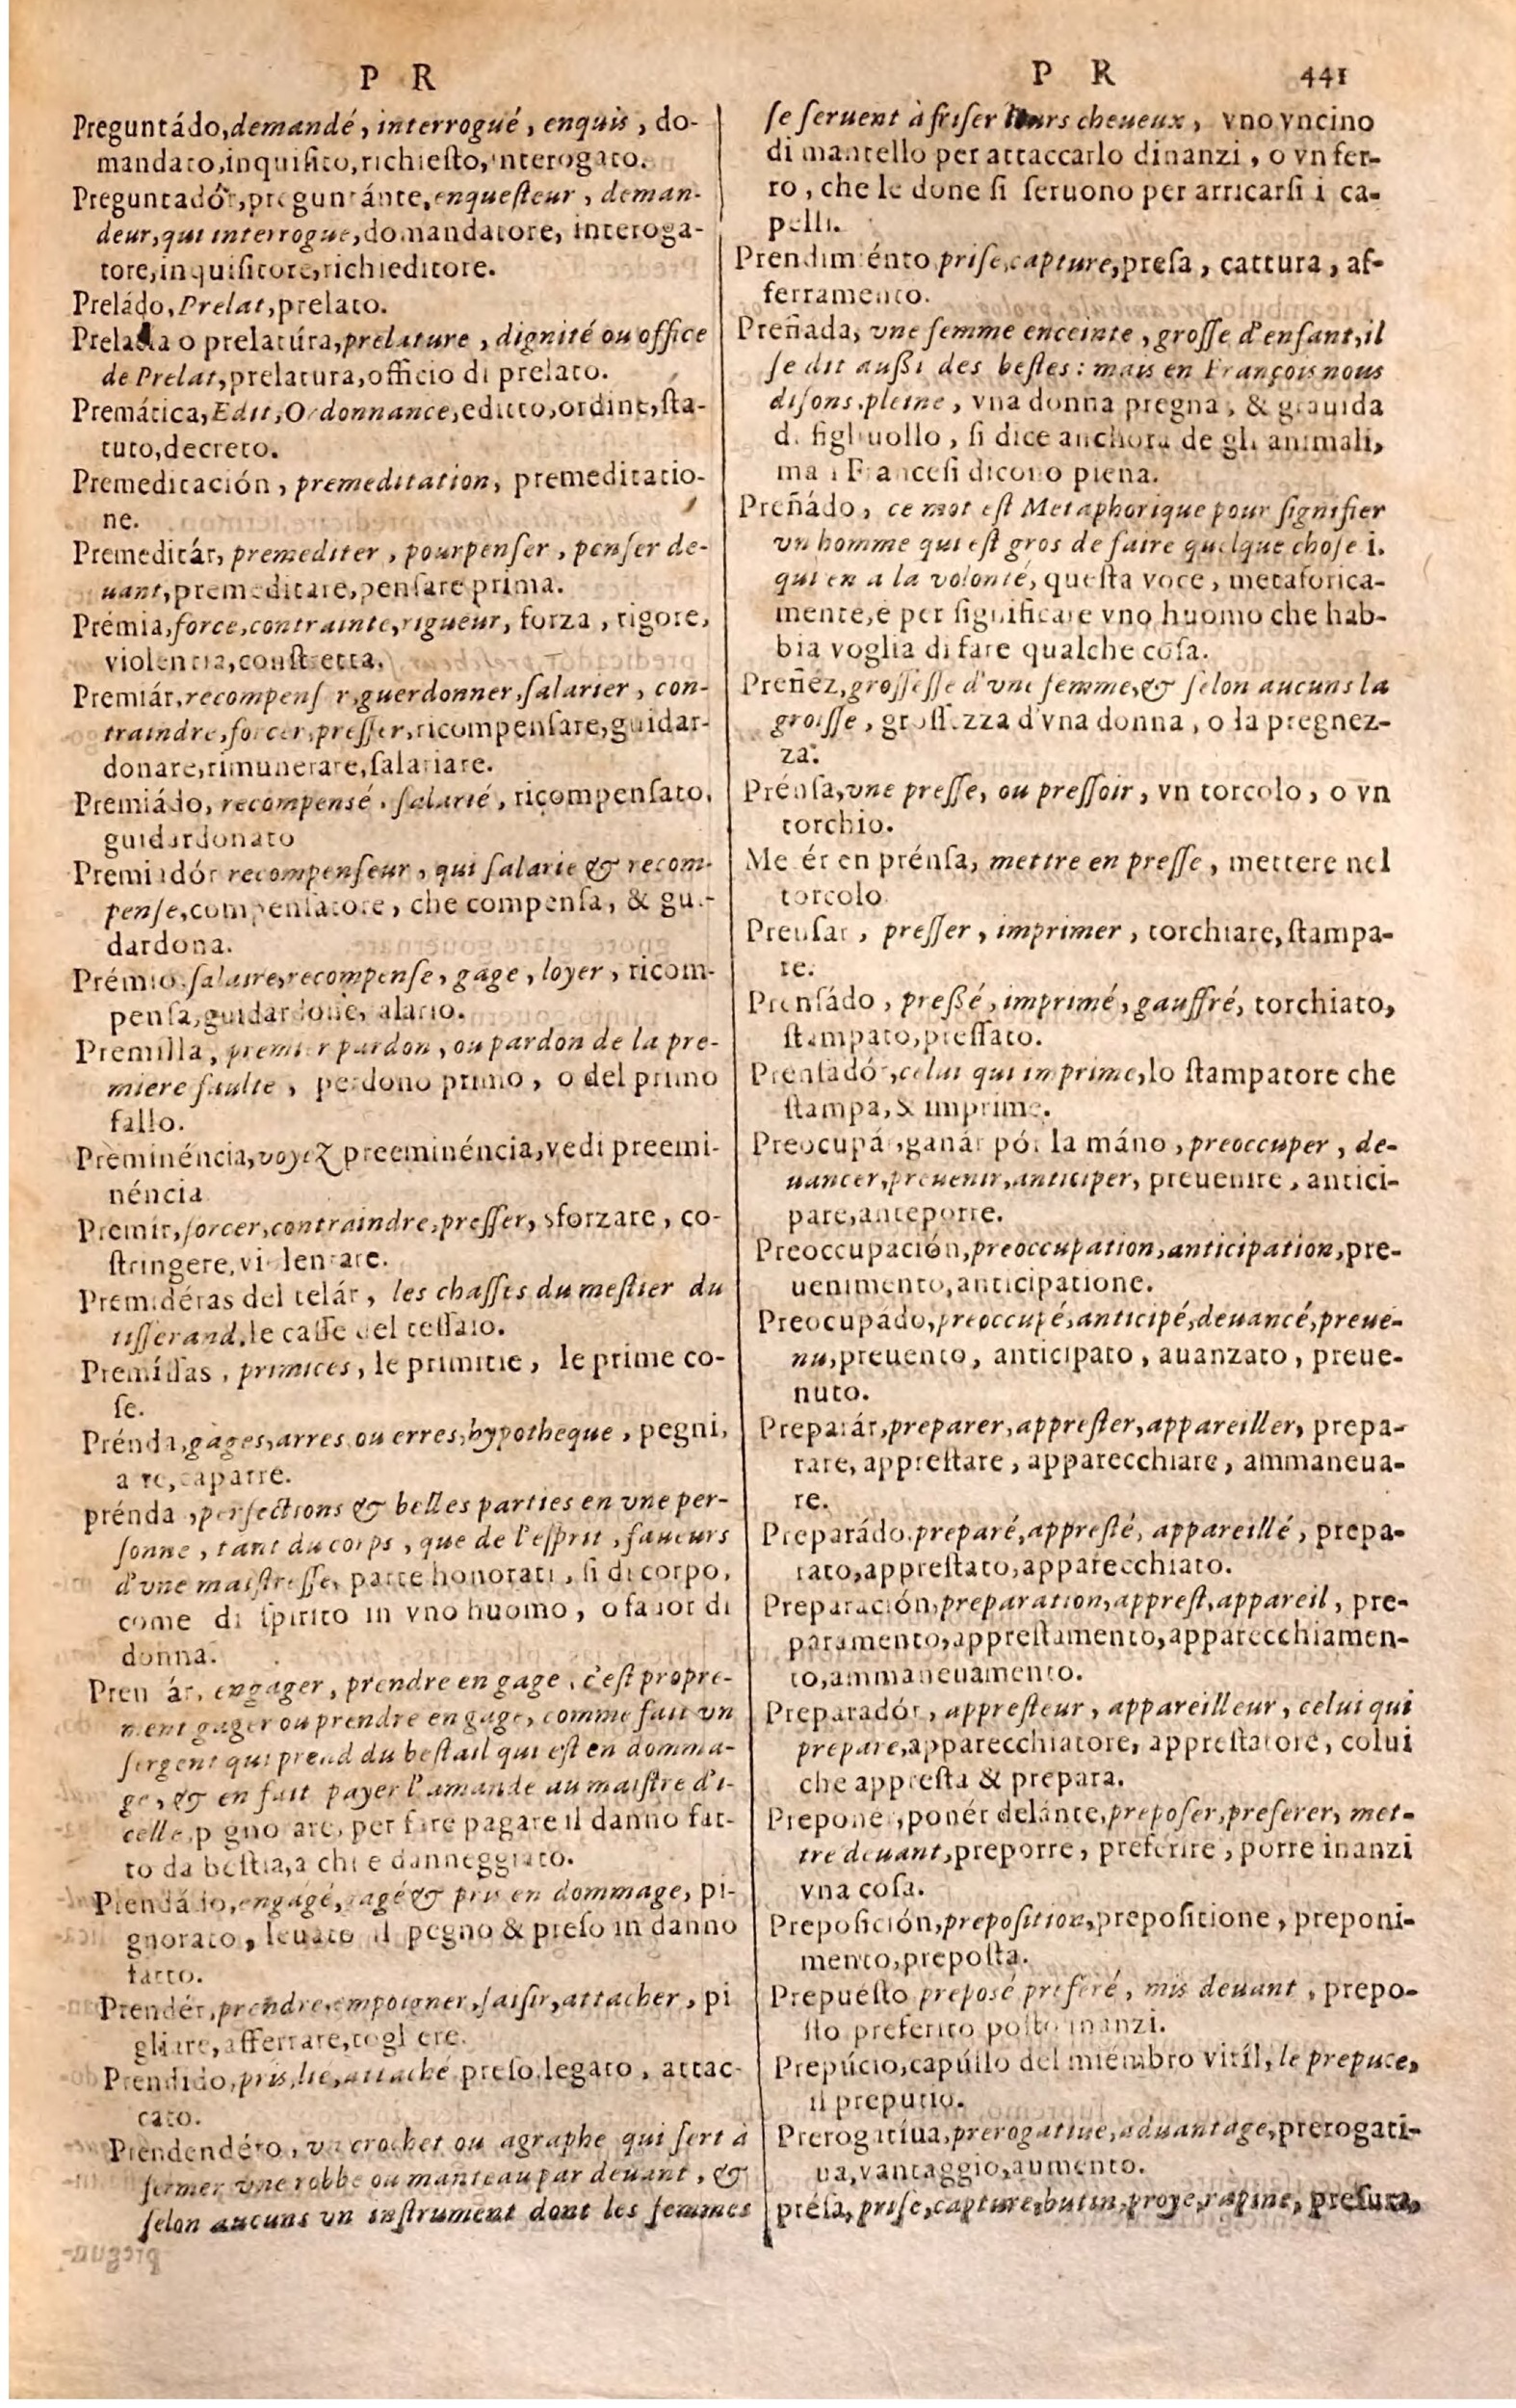 P R
Preguntádo, demandé, interrogué, enquis, do-
mandato, inquisito, richiesto, interogato.
Preguntadór, preguntánte, enquesteur, deman-
deur, qui interrogue, domandatore, interoga-
tore, inquisitore, richieditore.
Preládo, Prelat, prelato.
o prelatúra, prelature, dignité ou office
de Prelat, prelatura, officio di prelato.
Premática, Edit, Ordonnance, editto, ordine, sta-
tuto, decreto.
Premeditación, premeditation, premeditatio-
ne.
Premeditár, premediter, pourpenser, penser de-
uant, premeditare, pensare prima.
Prémia, force, contrainte, rigueur, forza, rigore,
violentia, constretta.
Premiár, recompenser, guerdonner, salarier, con-
traindre, forcer, presser, ricompensare, guidar-
donare, rimunerare, salariare.
Premiádo, recompensé, salarié, ricompensato,
guidardonato
Premiadór recompenseur, qui salarie & recom-
pense, compensatore, che compensa, & gui-
dardona.
Prémio salaire, recompense, gage, loyer, ricom-
pensa, guidardone, alario.
Premilla, premier pardon, ou pardon de la pre-
miere faulte, perdono primo, o del primo
fallo.
Preminéncia, voyez preeminéncia, vedi preemi-
néncia
Premir, forcer, contraindre, presser, sforzare, co-
stringere, violentare.
Premidéras del telár, les chasses du mestier du
tisserand, le casse del tessaio.
Premíssas, primices, le primitie, le prime co-
se.
Prénda, gages, arres ou erres, hypotheque, pegni,
a re, caparre.
prénda, perfections & belles parties en vne per-
sonne, tant du corps, que de l'esprit, faueurs
d'vne maistresse, parte honorati, si di corpo,
come di spirito in vno huomo, o fauor di
donna.
Pren ár, engager, prendre en gage, c'est propre-
ment gager ou prendre en gage, comme fait vn
sergent qui prend du bestail qui est en domma-
ge, & en fait payer l'amande au maistre d'i-
celle, p gno are, per fare pagare il danno fat-
to da bestia, a chi e danneggiato.
Prendádo, engagé, gagé & pris en dommage, pi-
gnorato, leuato il pegno & preso in danno
fatto.
Prendér, prendre, empoigner, saisir, attacher, pi
gliare, afferrare, togl ere.
Prendido, pris, lie, attaché preso, legato, attac-
cato.
Prendendéro, vn crochet ou agraphe qui sert à
fermer vne robbe ou manteau par deuant, &
selon aucuns vn instrument dont les femmes
P R 441
se seruent à friser leurs cheueux, vno vncino
di mantello per attaccarlo dinanzi, o vn fer-
ro, che le done si seruono per arricarsi i ca-
pelli.
Prendimiénto prise, capture, presa, cattura, af-
ferramento.
Preñada, vne femme enceinte, grosse d'enfant, il
se dit aussi des bestes: mais en François nous
disons, pleine, vna donna pregna, & grauida
di figliuollo, si dice anchora de gli animali,
ma i Francesi dicono piena.
Preñádo, ce mot est Metaphorique pour signifier
vn homme qui est gros de faire quelque chose i.
qui en a la volonté, questa voce, metaforica-
mente, e per significare vno huomo che hab-
bia voglia di fare qualche cosa.
Preñéz, grossesse d'vne femme, & selon aucuns la
groisse, grossezza d'vna donna, o la pregnez-
za.
Prénsa, vne presse, ou pressoir, vn torcolo, o vn
torchio.
Me ér en prénsa, mettre en presse, mettere nel
torcolo
Prensar, presser, imprimer, torchiare, stampa-
re.
Prensádo, pressé, imprimé, gauffré, torchiato,
stampato, pressato.
Prensadór, celui qui imprime, lo stampatore che
stampa, & imprime.
Preocupár, ganár pór la máno, preoccuper, de-
uancer, preuenir, anticiper, preuenire, antici-
pare, anteporre.
Preoccupación, preoccupation, anticipation, pre-
uenimento, anticipatione.
Preocupádo, preoccupé, anticipé, deuancé, preue-
nu, preuento, anticipato, auanzato, preue-
nuto.
Preparár, preparer, apprester, appareiller, prepa-
rare, apprestare, apparecchiare, ammaneua-
re.
Preparádo, preparé, appresté, appareillé, prepa-
rato, apprestato, apparecchiato.
Preparación, preparation, apprest, appareil, pre-
paramento, apprestamento, apparecchiamen-
to, ammaneuamento.
Preparadór, appresteur, appareilleur, celui qui
prepare, apparecchiatore, apprestatore, colui
che appresta & prepara.
Preponer, ponér delánte, preposer, preferer, met-
tre deuant, preporre, preferire, porre inanzi
vna cosa.
Preposición, preposition, prepositione, preponi-
mento, preposta.
Prepuésto preposé preferé, mis deuant, prepo-
sto preferito posto inanzi.
Prepúcio, capúllo del miémbro viríl, le prepuce,
il preputio.
Prerogatíua, prerogatiue, aduantage, prerogati-
ua, vantaggio, aumento.
présa, prise, capture, butin, proye, rapine, presura,